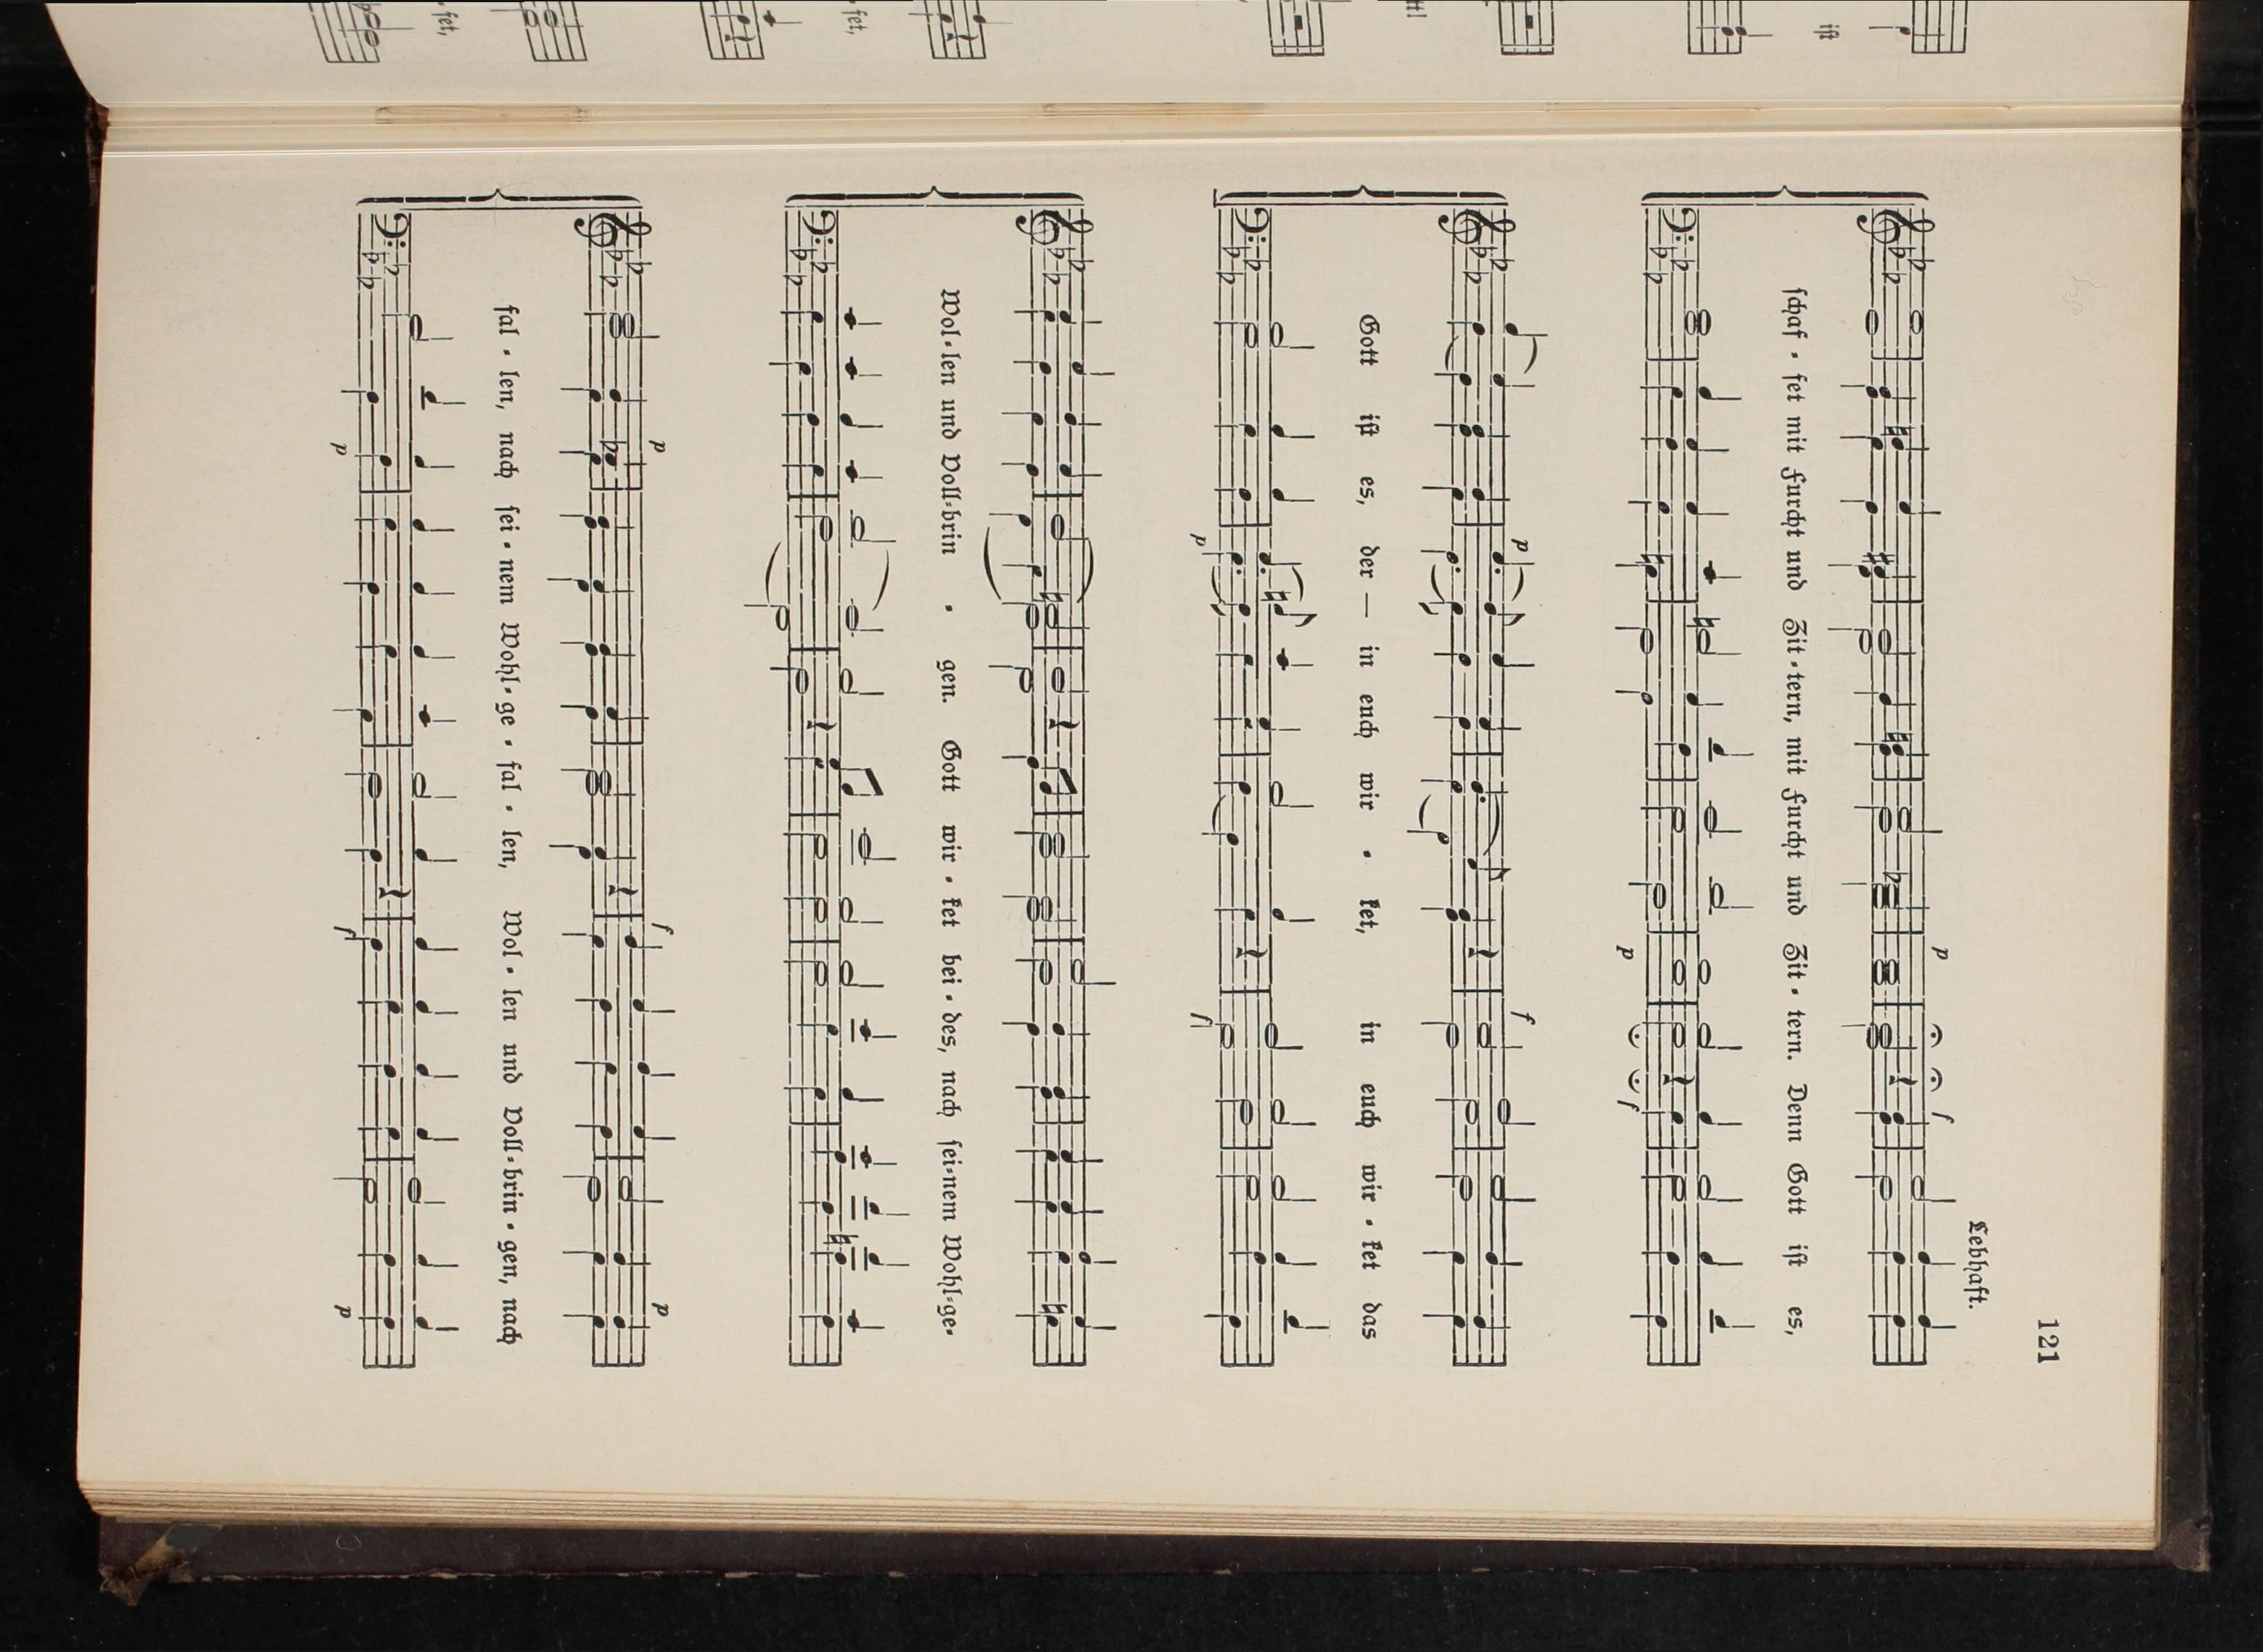 121
Lebhaft.
p f
schaf - fet mit Furcht und Zit - tern, mit Furcht und Zit - tern. Denn Gott ist es,
p f
p f
Gott ist es, der — in euch wir - ket, in euch wir - ket das
p f
Wol - len und Voll - brin - gen. Gott wir - ket bei - des, nach sei - nem Wohl - ge-
p f p
fal - len, nach sei - nem Wohl - ge - fal - len, Wol - len und Voll - brin - gen, nach
p f p
ist
fet,
fet,